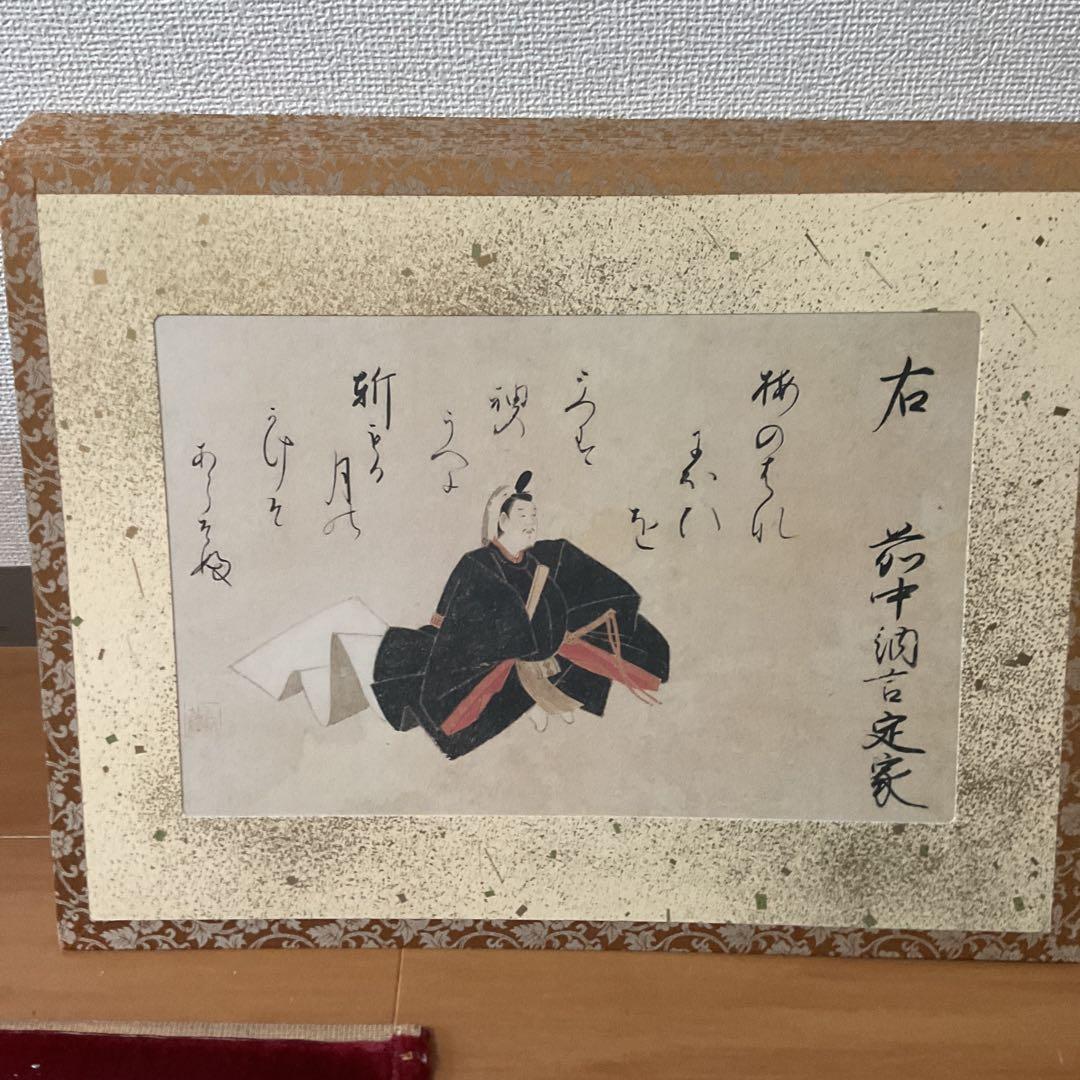 右
前中納言定家
梅のはな
にほひ
を
うつす
袖の
うへに
軒もる
月の
かけそ
あらそふ